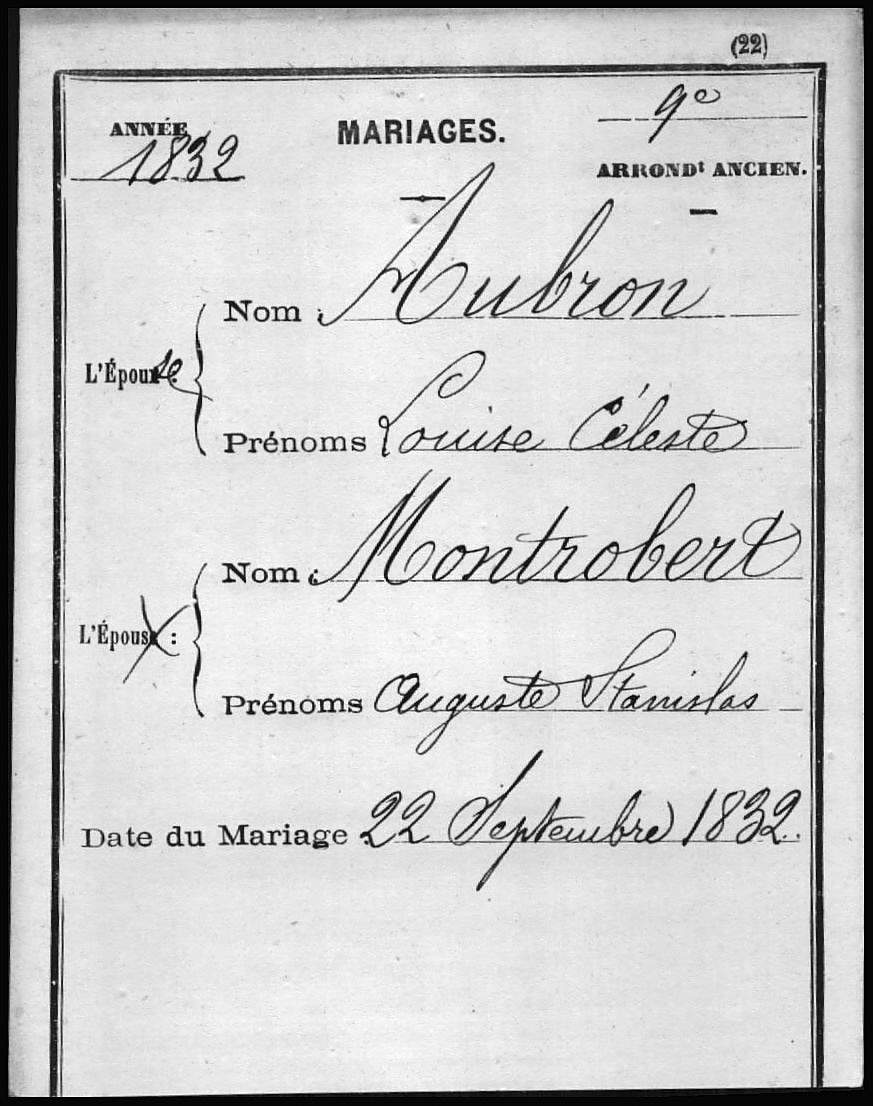 (22)
ANNÉE
1832
MARIAGES.
9e
ARRONDt ANCIEN.
Nom : Aubron
L'Épouse :
Prénoms Louise Céleste
Nom : Montrobert
L'Épous :
Prénoms Auguste Stanislas
Date du Mariage : 22 Septembre 1832.